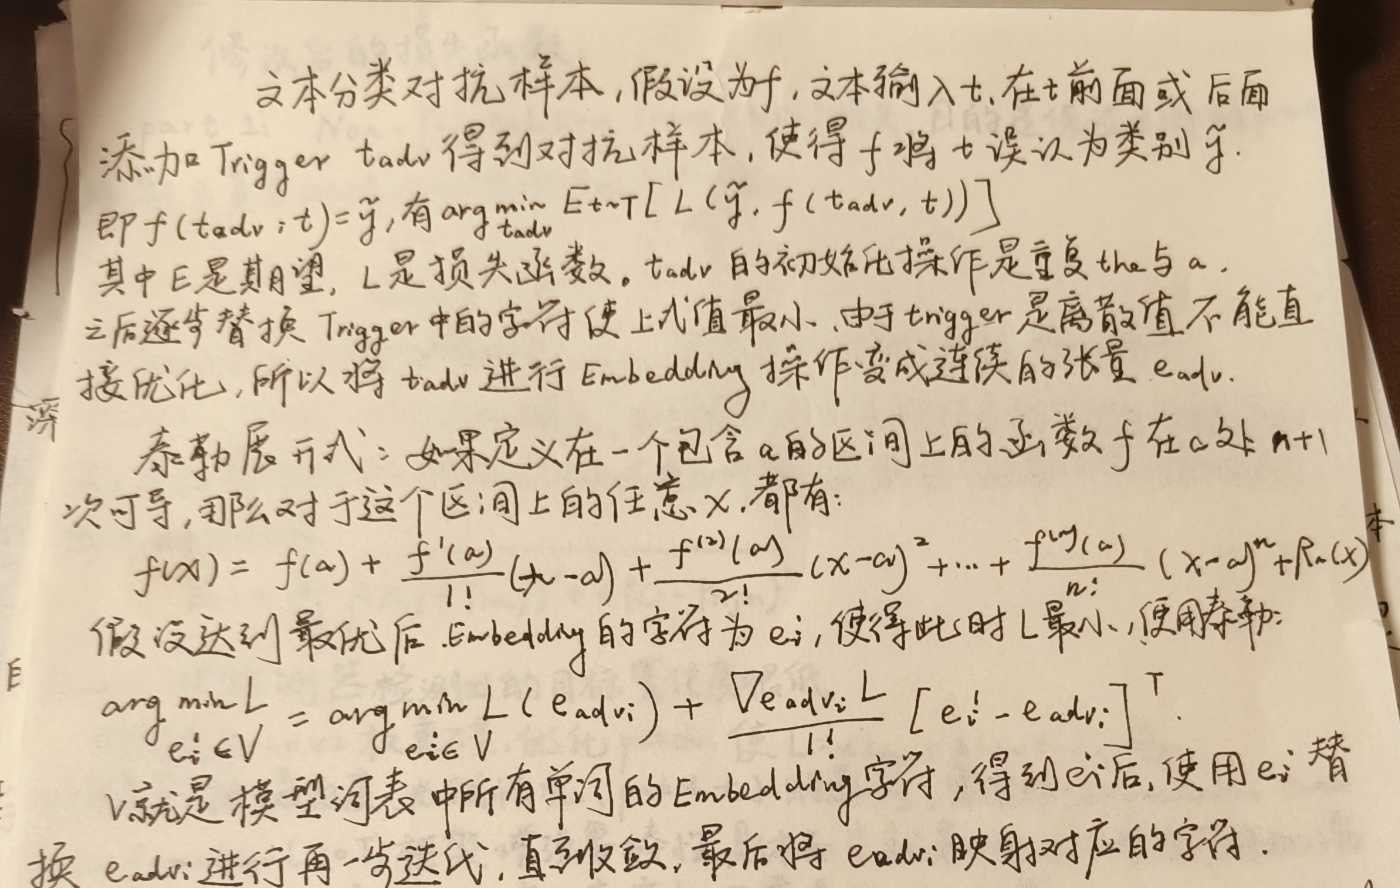 文本分类对抗样本,假设为f,文本输入t,在t前面或后面
添加Trigger tadv得到对抗样本,使得f将t误认为类别ỹ.
即f(tadv;t)=ỹ,有arg min tadv Et~T[L(ỹ,f(tadv,t))]
其中E是期望,L是损失函数。tadv的初始化操作是重复the与a,
之后逐步替换Trigger中的字符使上式值最小,由于trigger是离散值不能直
接优化,所以将tadv进行Embedding操作变成连续的张量eadv.
泰勒展开式:如果定义在一个包含a的区间上的函数f在a处n+1
次可导,那么对于这个区间上的任意x,都有:
f(x)=f(a)+f'(a)/1!(x-a)+f⁽²⁾(a)/2!(x-a)²+…+f⁽ⁿ⁾(a)/n!(x-a)ⁿ+Rn(x)
假设达到最优后,Embedding的字符为ei,使得此时L最小,使用泰勒:
arg min L ei'∈V = arg min ei'∈V L(eadvi)+∇eadvi L/1! [ei'-eadvi]ᵀ.
V就是模型词表中所有单词的Embedding字符,得到ei后,使用ei替
换eadvi进行再一步迭代,直到收敛,最后将eadvi映射对应的字符.